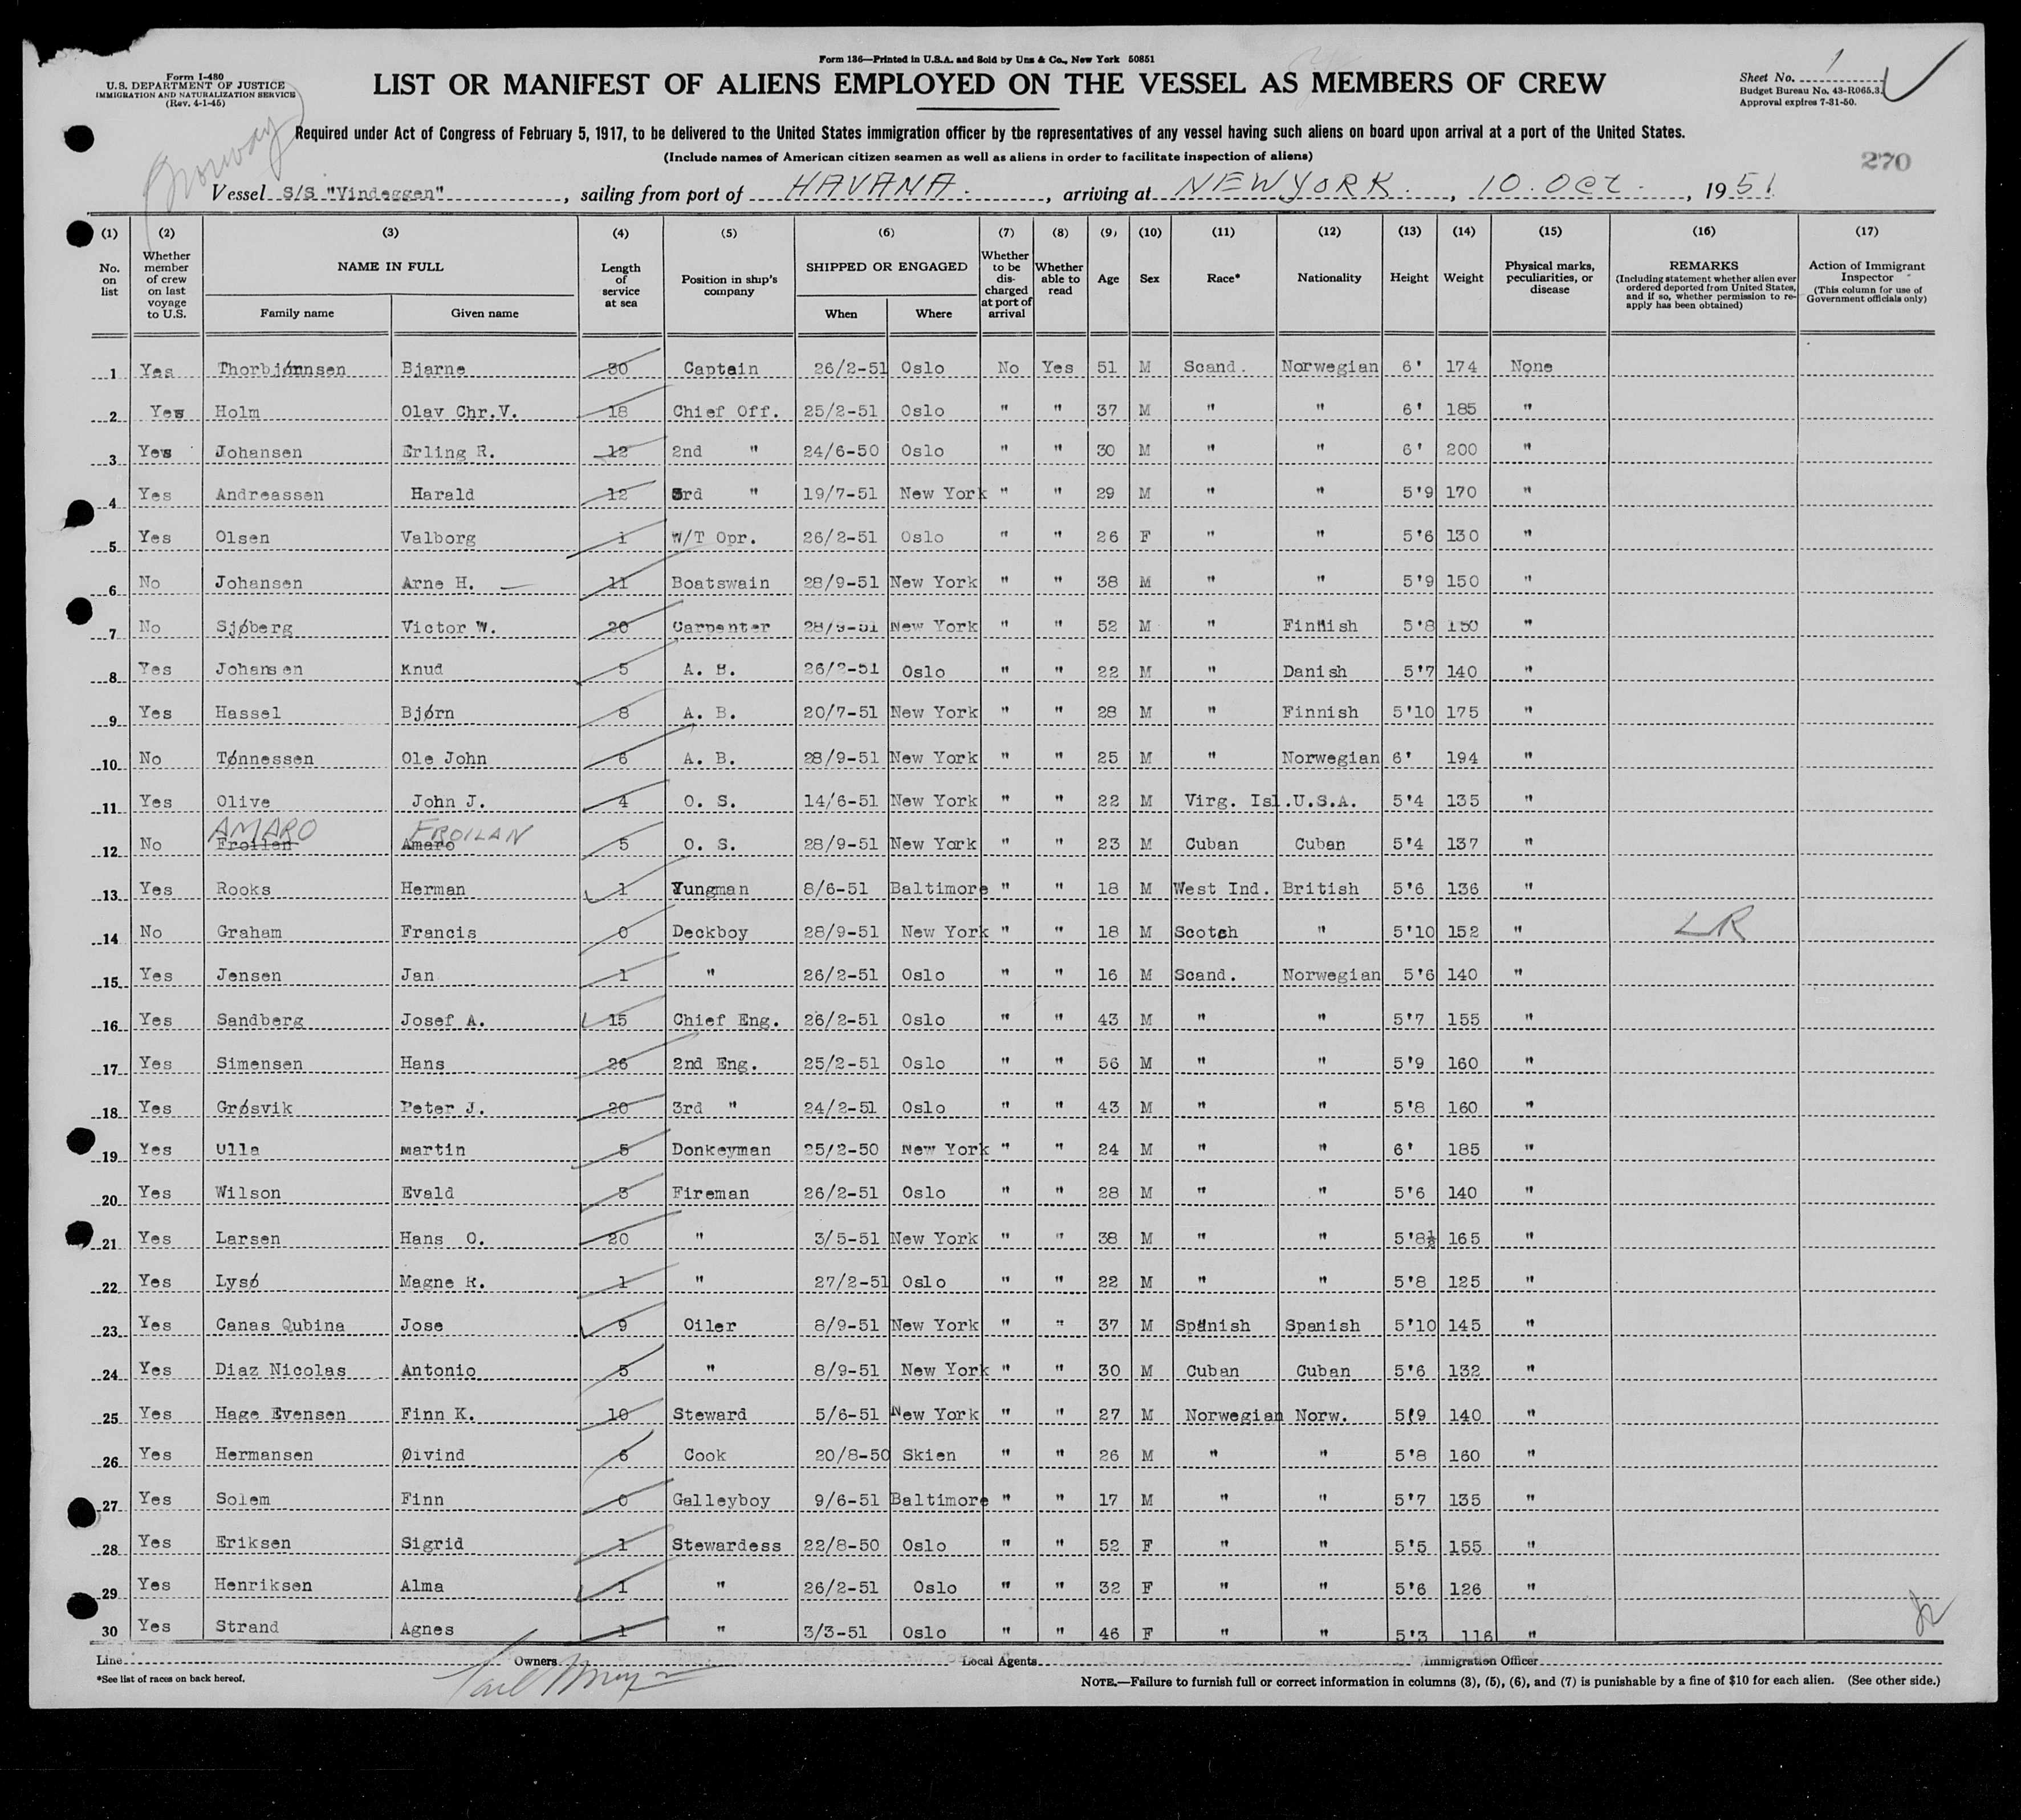 Form 136—Printed in U.S.A. and Sold by Unz & Co., New York 50851
Form I-480
U.S. DEPARTMENT OF JUSTICE
IMMIGRATION AND NATURALIZATION SERVICE
(Rev. 4-1-45)
LIST OR MANIFEST OF ALIENS EMPLOYED ON THE VESSEL AS MEMBERS OF CREW
Sheet No. 1
Budget Bureau No. 43-R065.3.
Approval expires 7-31-50.
Norway
Required under Act of Congress of February 5, 1917, to be delivered to the United States immigration officer by the representatives of any vessel having such aliens on board upon arrival at a port of the United States.
(Include names of American citizen seamen as well as aliens in order to facilitate inspection of aliens)
270
Vessel S/S "Vindeggen", sailing from port of HAVANA., arriving at NEW YORK., 10. Oct., 1951
(1) (2) (3) (4) (5) (6) (7) (8) (9) (10) (11) (12) (13) (14) (15) (16) (17)
No. on list | Whether member of crew on last voyage to U.S. | NAME IN FULL Family name Given name | Length of service at sea | Position in ship's company | SHIPPED OR ENGAGED When Where | Whether to be discharged at port of arrival | Whether able to read | Age | Sex | Race* | Nationality | Height | Weight | Physical marks, peculiarities, or disease | REMARKS (Including statement whether alien ever ordered deported from United States, and if so, whether permission to re-apply has been obtained) | Action of Immigrant Inspector (This column for use of Government officials only)
1 Yes Thorbjørnnsen Bjarne 30 Captain 26/2-51 Oslo No Yes 51 M Scand. Norwegian 6' 174 None
2 Yes Holm Olav Chr.V. 18 Chief Off. 25/2-51 Oslo " " 37 M " " 6' 185 "
3 Yes Johansen Erling R. 12 2nd " 24/6-50 Oslo " " 30 M " " 6' 200 "
4 Yes Andreassen Harald 12 3rd " 19/7-51 New York " " 29 M " " 5'9 170 "
5 Yes Olsen Valborg 1 W/T Opr. 26/2-51 Oslo " " 26 F " " 5'6 130 "
6 No Johansen Arne H. 11 Boatswain 28/9-51 New York " " 38 M " " 5'9 150 "
7 No Sjøberg Victor W. 20 Carpenter 28/9-51 New York " " 52 M " Finnish 5'8 150 "
8 Yes Johansen Knud 5 A. B. 26/2-51 Oslo " " 22 M " Danish 5'7 140 "
9 Yes Hassel Bjørn 8 A. B. 20/7-51 New York " " 28 M " Finnish 5'10 175 "
10 No Tønnessen Ole John 6 A. B. 28/9-51 New York " " 25 M " Norwegian 6' 194 "
11 Yes Olive John J. 4 O. S. 14/6-51 New York " " 22 M Virg. Isl. U.S.A. 5'4 135 "
AMARO FROILAN
12 No Froilan Amaro 5 O. S. 28/9-51 New York " " 23 M Cuban Cuban 5'4 137 "
13 Yes Rooks Herman 1 Yungman 8/6-51 Baltimore " " 18 M West Ind. British 5'6 136 "
14 No Graham Francis 0 Deckboy 28/9-51 New York " " 18 M Scotch " 5'10 152 " LR
15 Yes Jensen Jan 1 " 26/2-51 Oslo " " 16 M Scand. Norwegian 5'6 140 "
16 Yes Sandberg Josef A. 15 Chief Eng. 26/2-51 Oslo " " 43 M " " 5'7 155 "
17 Yes Simensen Hans 26 2nd Eng. 25/2-51 Oslo " " 56 M " " 5'9 160 "
18 Yes Grøsvik Peter J. 20 3rd " 24/2-51 Oslo " " 43 M " " 5'8 160 "
19 Yes Ulla Martin 5 Donkeyman 25/2-50 New York " " 24 M " " 6' 185 "
20 Yes Wilson Evald 3 Fireman 26/2-51 Oslo " " 28 M " " 5'6 140 "
21 Yes Larsen Hans O. 20 " 3/5-51 New York " " 38 M " " 5'8½ 165 "
22 Yes Lysó Magne R. 1 " 27/2-51 Oslo " " 22 M " " 5'8 125 "
23 Yes Canas Qubina Jose 9 Oiler 8/9-51 New York " " 37 M Spanish Spanish 5'10 145 "
24 Yes Diaz Nicolas Antonio 5 " 8/9-51 New York " " 30 M Cuban Cuban 5'6 132 "
25 Yes Hage Evensen Finn K. 10 Steward 5/6-51 New York " " 27 M Norwegian Norw. 5'9 140 "
26 Yes Hermansen Øivind 6 Cook 20/8-50 Skien " " 26 M " " 5'8 160 "
27 Yes Solem Finn 0 Galleyboy 9/6-51 Baltimore " " 17 M " " 5'7 135 "
28 Yes Eriksen Sigrid 1 Stewardess 22/8-50 Oslo " " 52 F " " 5'5 155 "
29 Yes Henriksen Alma 1 " 26/2-51 Oslo " " 32 F " " 5'6 126 "
30 Yes Strand Agnes 1 " 3/3-51 Oslo " " 46 F " " 5'3 116 "
Line Owners Local Agents Immigration Officer
*See list of races on back hereof.
NOTE.—Failure to furnish full or correct information in columns (3), (5), (6), and (7) is punishable by a fine of $10 for each alien. (See other side.)